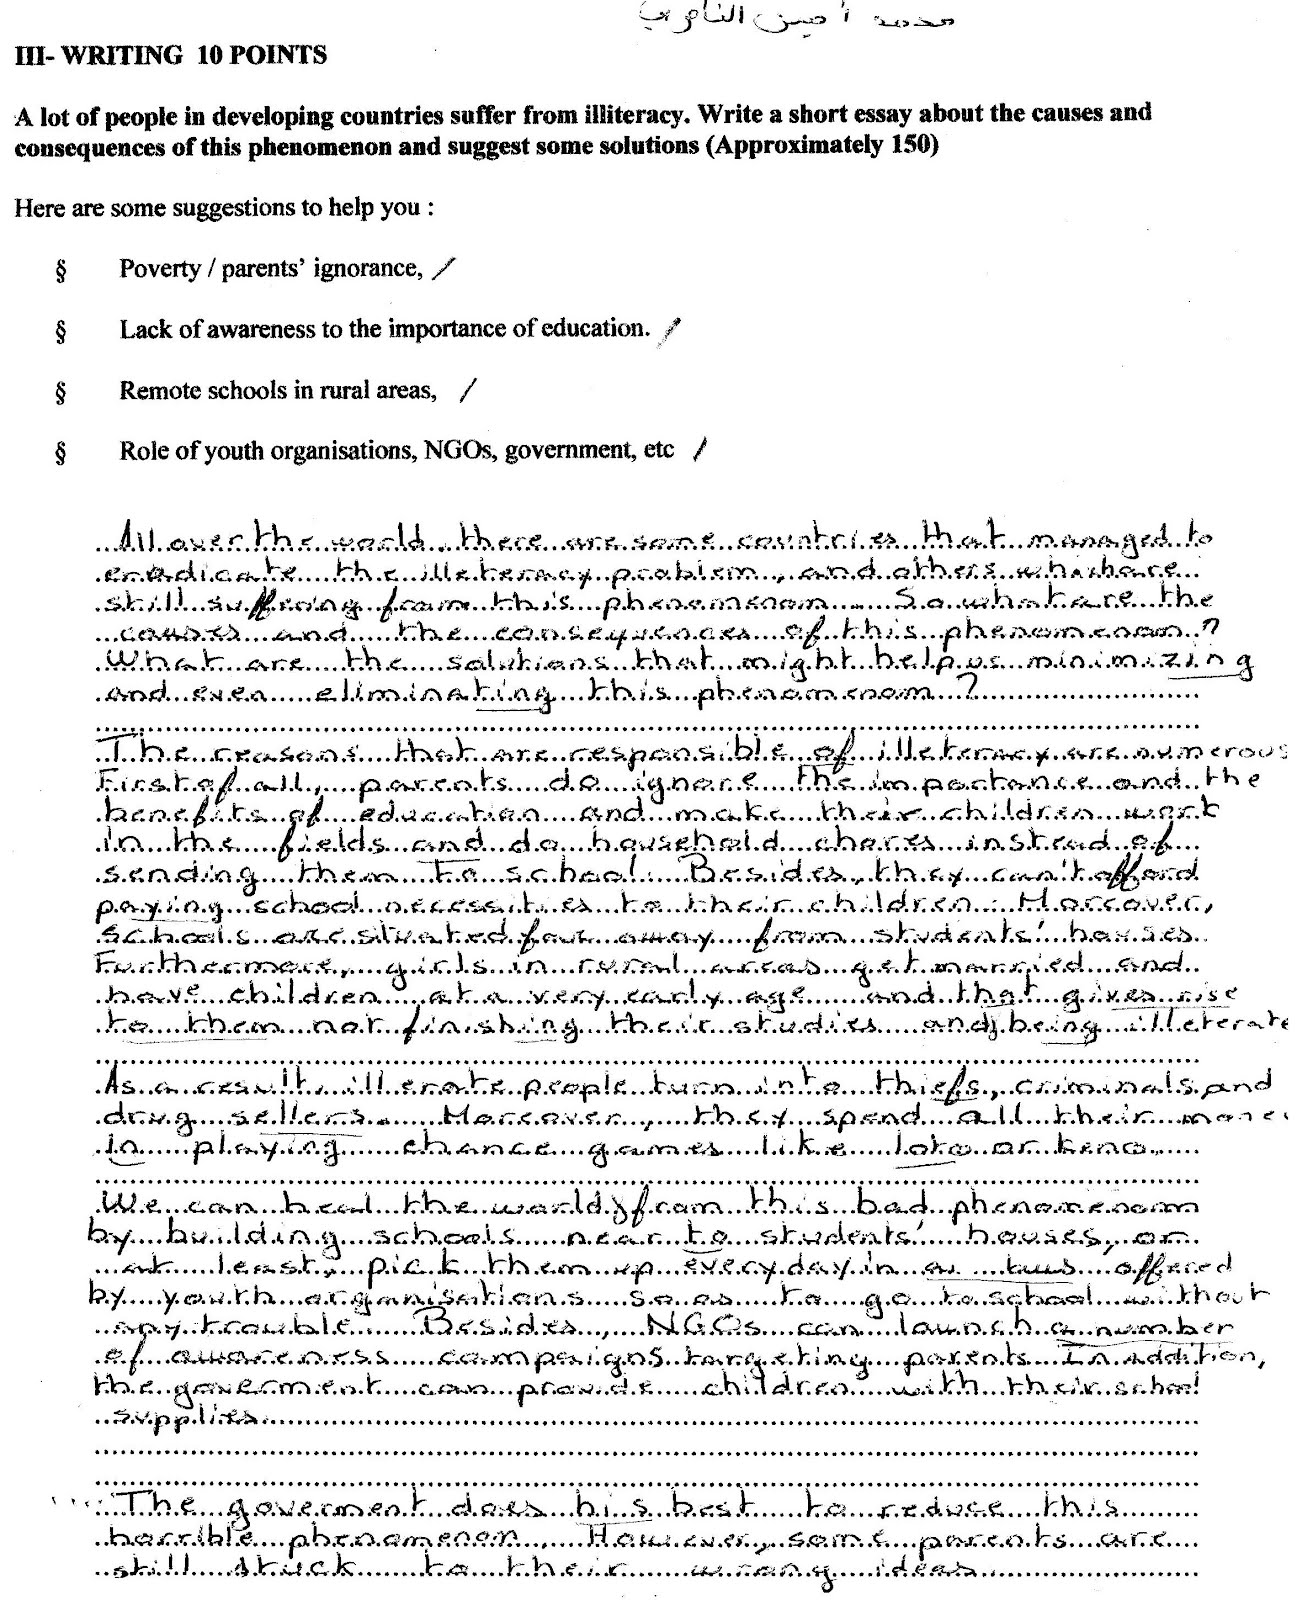 محمد أمين الناصري
III- WRITING 10 POINTS
A lot of people in developing countries suffer from illiteracy. Write a short essay about the causes and
consequences of this phenomenon and suggest some solutions (Approximately 150)
Here are some suggestions to help you :
§ Poverty / parents' ignorance, /
§ Lack of awareness to the importance of education. /
§ Remote schools in rural areas, /
§ Role of youth organisations, NGOs, government, etc /
All over the world, there are some countries that managed to
eradicate the illeteracy problem, and others who are
still suffering from this phenomenom. So what are the
causes and the consequences of this phenomenom?
What are the solutions that might help us minimizing
and even eliminating this phenomenom?
The reasons that are responsible of illeteracy are numerous
First of all, parents do ignore the importance and the
benefits of education and make their children work
in the fields and do household chores instead of
sending them to school. Besides, they can't afford
paying school necessities to their children. Moreover,
schools are situated far away from students' houses.
Furthermore, girls in rural areas get married and
have children at a very early age and that gives rise
to them not finishing their studies and being illeterate
As a result, illerate people turn into thiefs, criminals and
drug sellers. Moreover, they spend all their money
in playing chance games like loto or keno.
We can heal the world from this bad phenomenom
by building schools near to students' houses, or
at least, pick them up every day in a bus offered
by youth organisations so as to go to school without
any trouble. Besides, NGOs can launch a number
of awareness campaigns targeting parents. In addition,
the goverment can provide children with their school
supplies
The goverment does his best to reduce this
horrible phenomenon. However, some parents are
still stuck to their wrong ideas